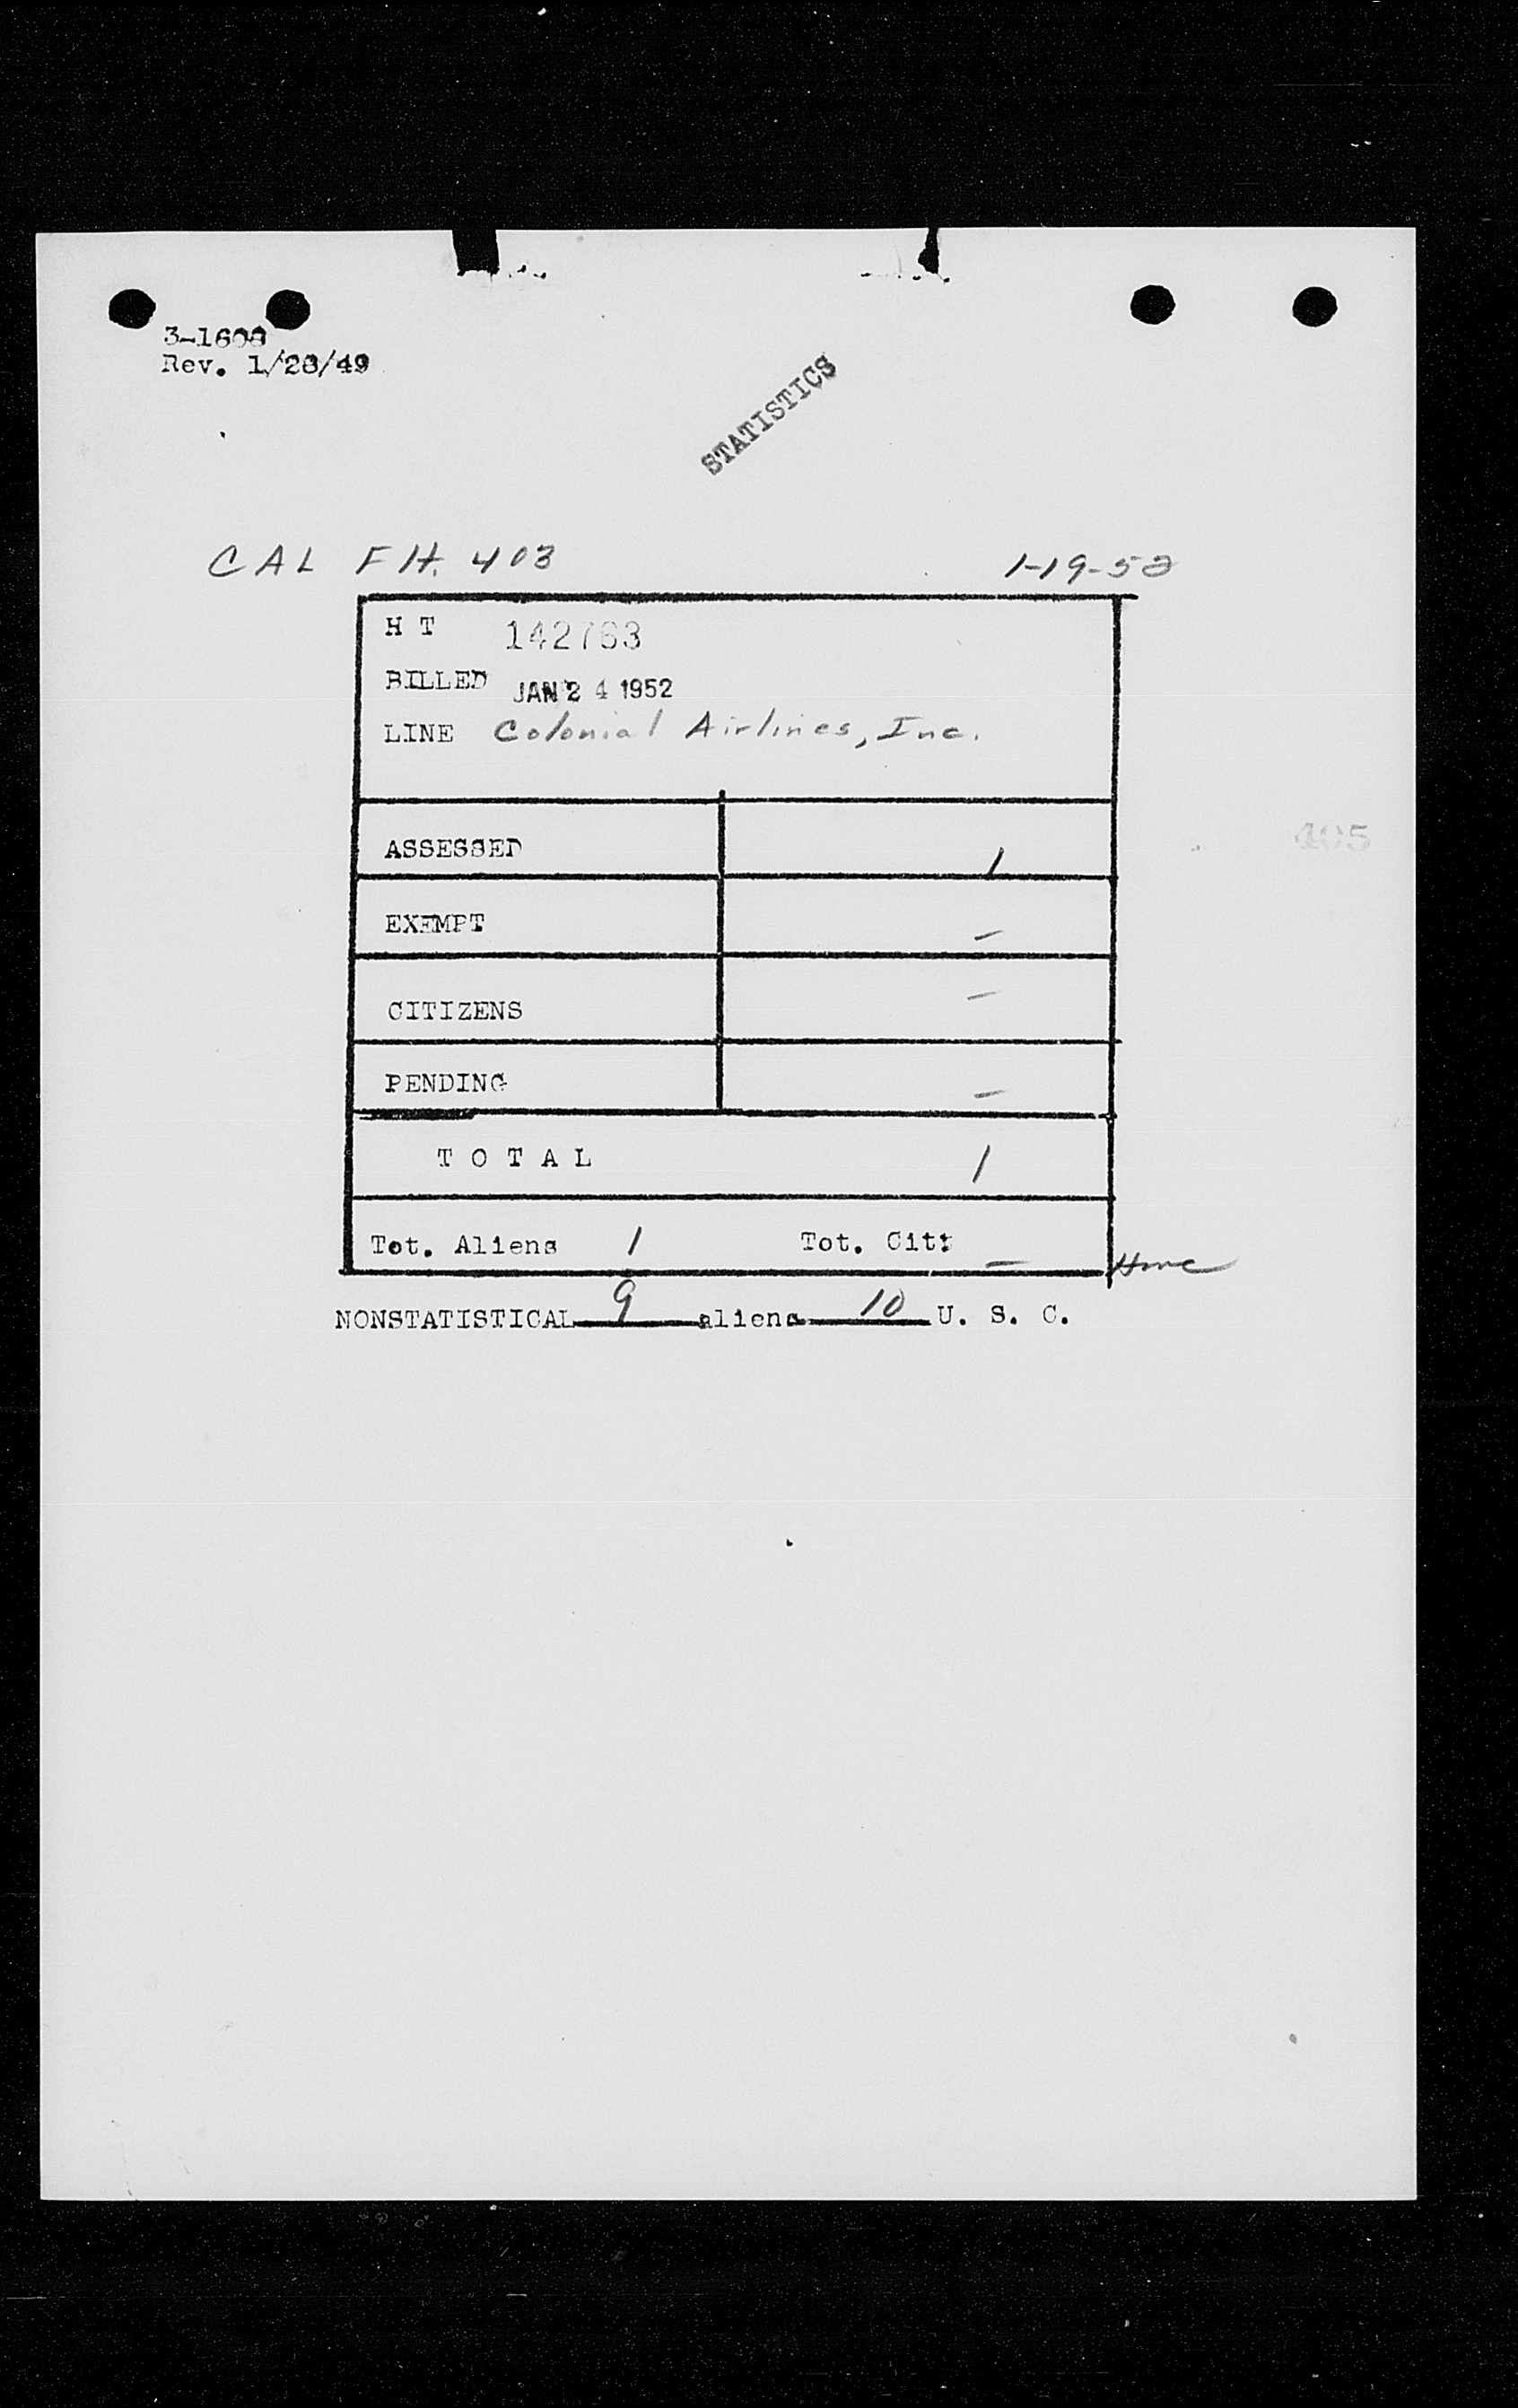 3-1608
Rev. 1/28/49
STATISTICS
CAL Flt. 403 1-19-52
H T 142763
BILLED JAN 24 1952
LINE Colonial Airlines, Inc.
ASSESSED 1
405
EXEMPT -
CITIZENS -
PENDING -
T O T A L 1
Tot. Aliens 1 Tot. Cit: -
NONSTATISTICAL 9 aliens 10 U. S. C.